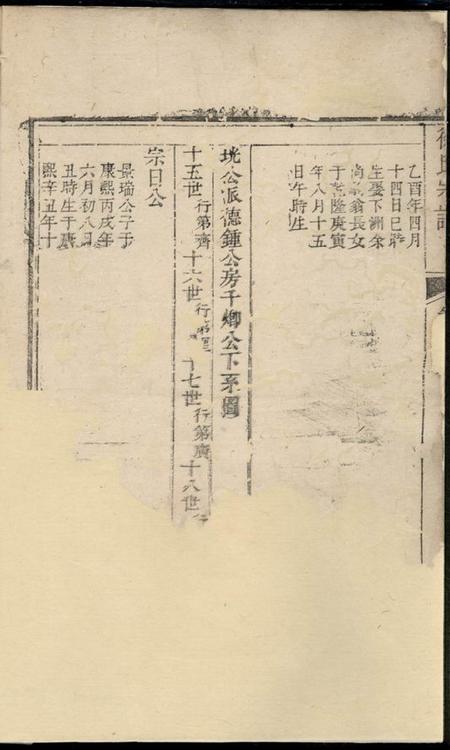 乙酉年四月
十四日巳時
生娶下洲余
翁長女
于乾隆庚寅
年八月十五
日午時生
珖公派德鍾公房千卿公下系圖
十五世行第齊 十六世行第 十七世行第廣 十八世行
宗日公
景瑞公子于
康熙丙戌年
六月初八日
丑時生于康
熙辛丑年十